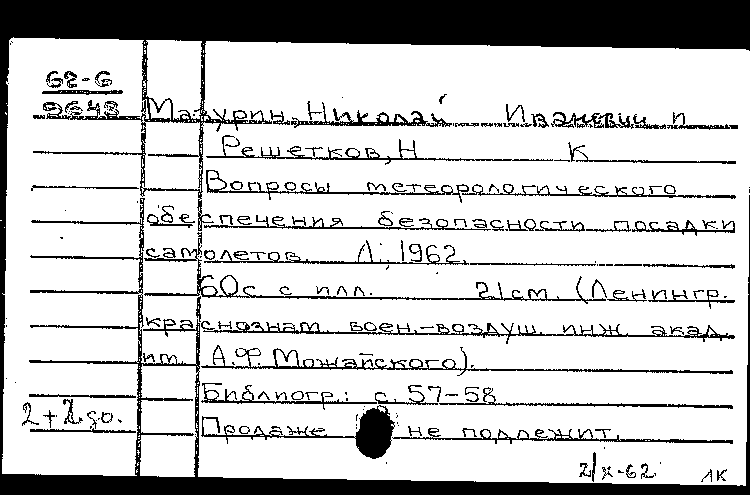 62-6
9648
Мазурин, Николай Иванович и
Решетков, Н К
Вопросы метеорологического
обеспечения безопасности посадки
самолетов. Л., 1962.
60с с илл. 21см. (Ленингр.
краснознам. воен.-воздуш. инж. акад.
им. А.Ф. Можайского).
Библиогр.: с. 57-58
2+2 до.
Продаже не подлежит.
2/X-62 ЛК